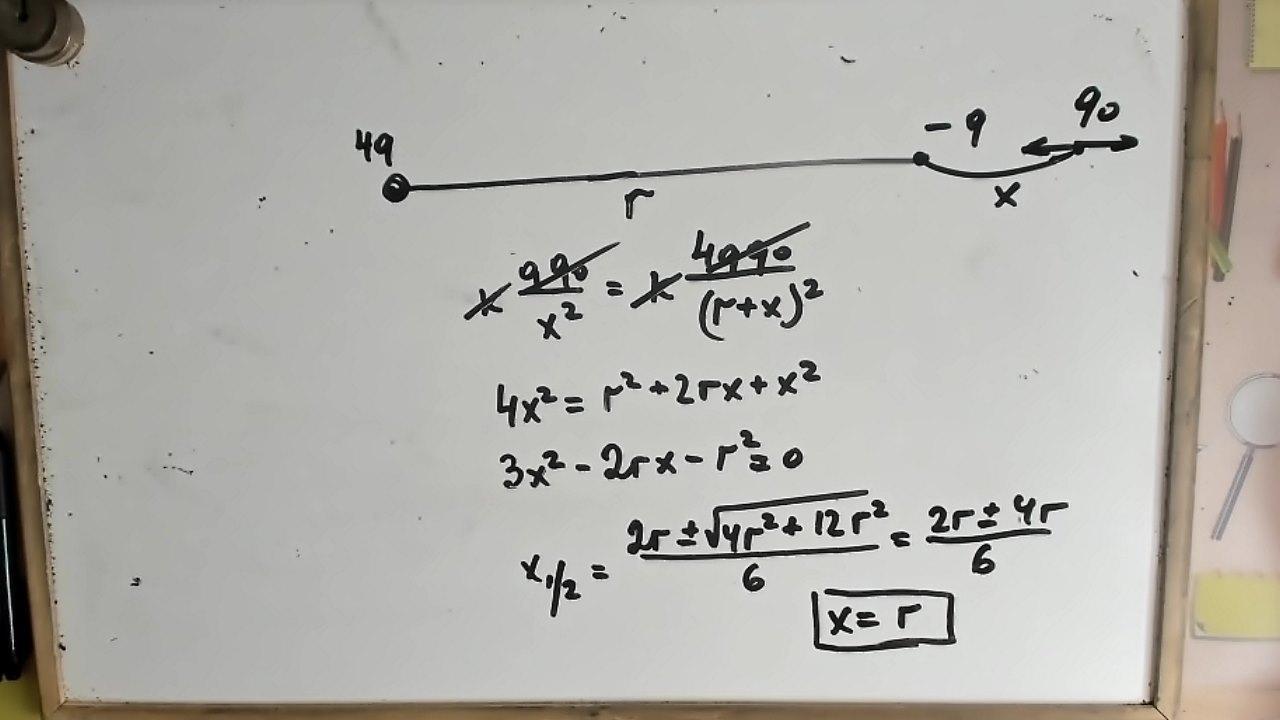 4q
- q
q₀
r
x
k qq₀/x² = k 4qq₀/(r+x)²
4x² = r² + 2rx + x²
3x² - 2rx - r² = 0
x₁/₂ = (2r ± √(4r² + 12r²))/6 = (2r ± 4r)/6
x = r